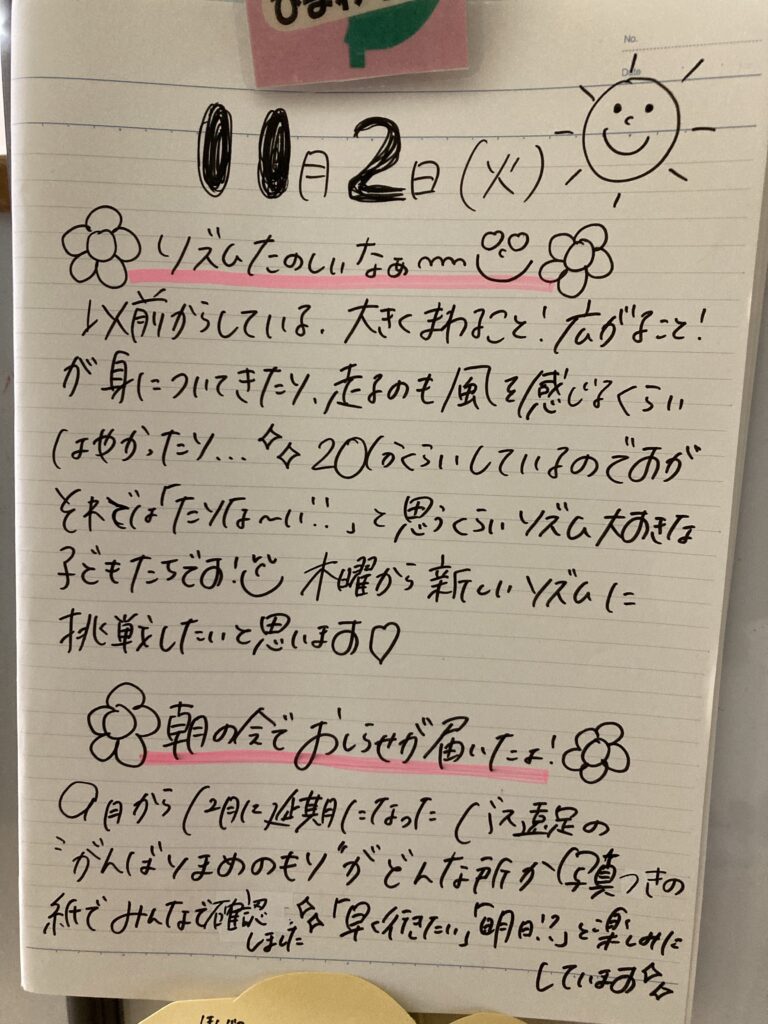 ひまわ
No.
Date
11月2日(火)
リズムたのしいなぁ〜
以前からしている、大きくまわること!広がること!
が身についてきたり、走るのも風を感じるくらい
はやかったり... 20分くらいしているのですが
それでは「たりな〜い!!」と思うくらいリズム大すきな
子どもたちです! 木曜から新しいリズムに
挑戦したいと思います♡
朝の会でおしらせが届いたよ!
9月から12月に延期になったバス遠足の
"がんばりまめのもり"がどんな所か写真つきの
紙でみんなで確認しました「早く行きたい」「明日!?」と楽しみに
しています